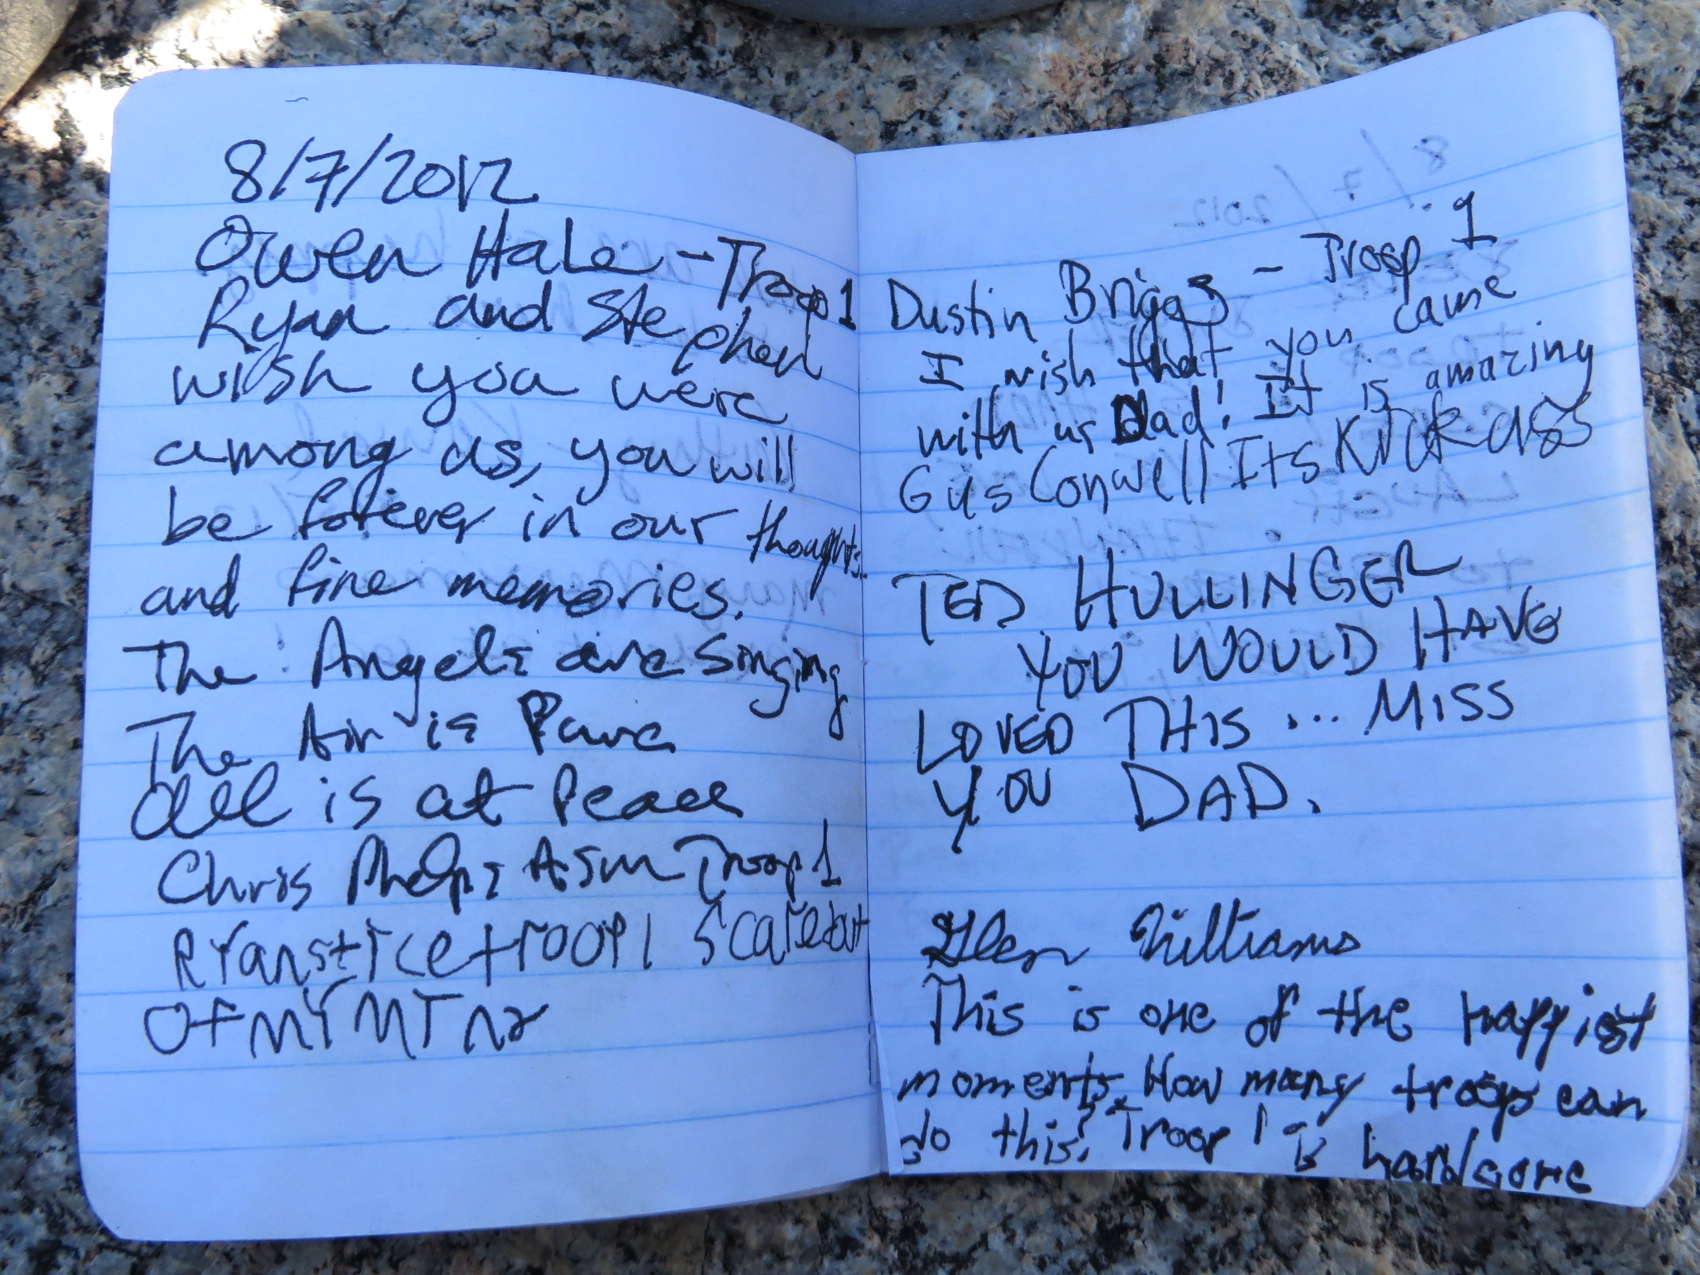 8/7/2012
Owen Hale - Troop 1
Ryan and Stephen
wish you were
among us, you will
be forever in our thoughts
and fine memories.
The Angels are Singing
The Air is Pure
All is at Peace
Chris Phelps ASM Troop 1
Ryan stice troop 1 Scared out
Of MY MT N2
Dustin Briggs - Troop 1
I wish that you came
with us Dad! It is amazing
Gus Conwell Its Kick ass
TED HULLINGER
YOU WOULD HAVE
LOVED THIS... MISS
YOU DAD.
Glen Williams
This is one of the happiest
moments. How many troops can
do this? Troop 1 is hardcore